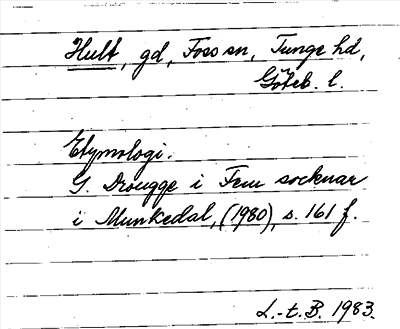 Hult, gd, Foss sn, Tunge hd,
Göteb. l.
Etymologi.
G. Drougge i Fem socknar
i Munkedal, (1980), s. 161 f.
L.-t. B. 1983.